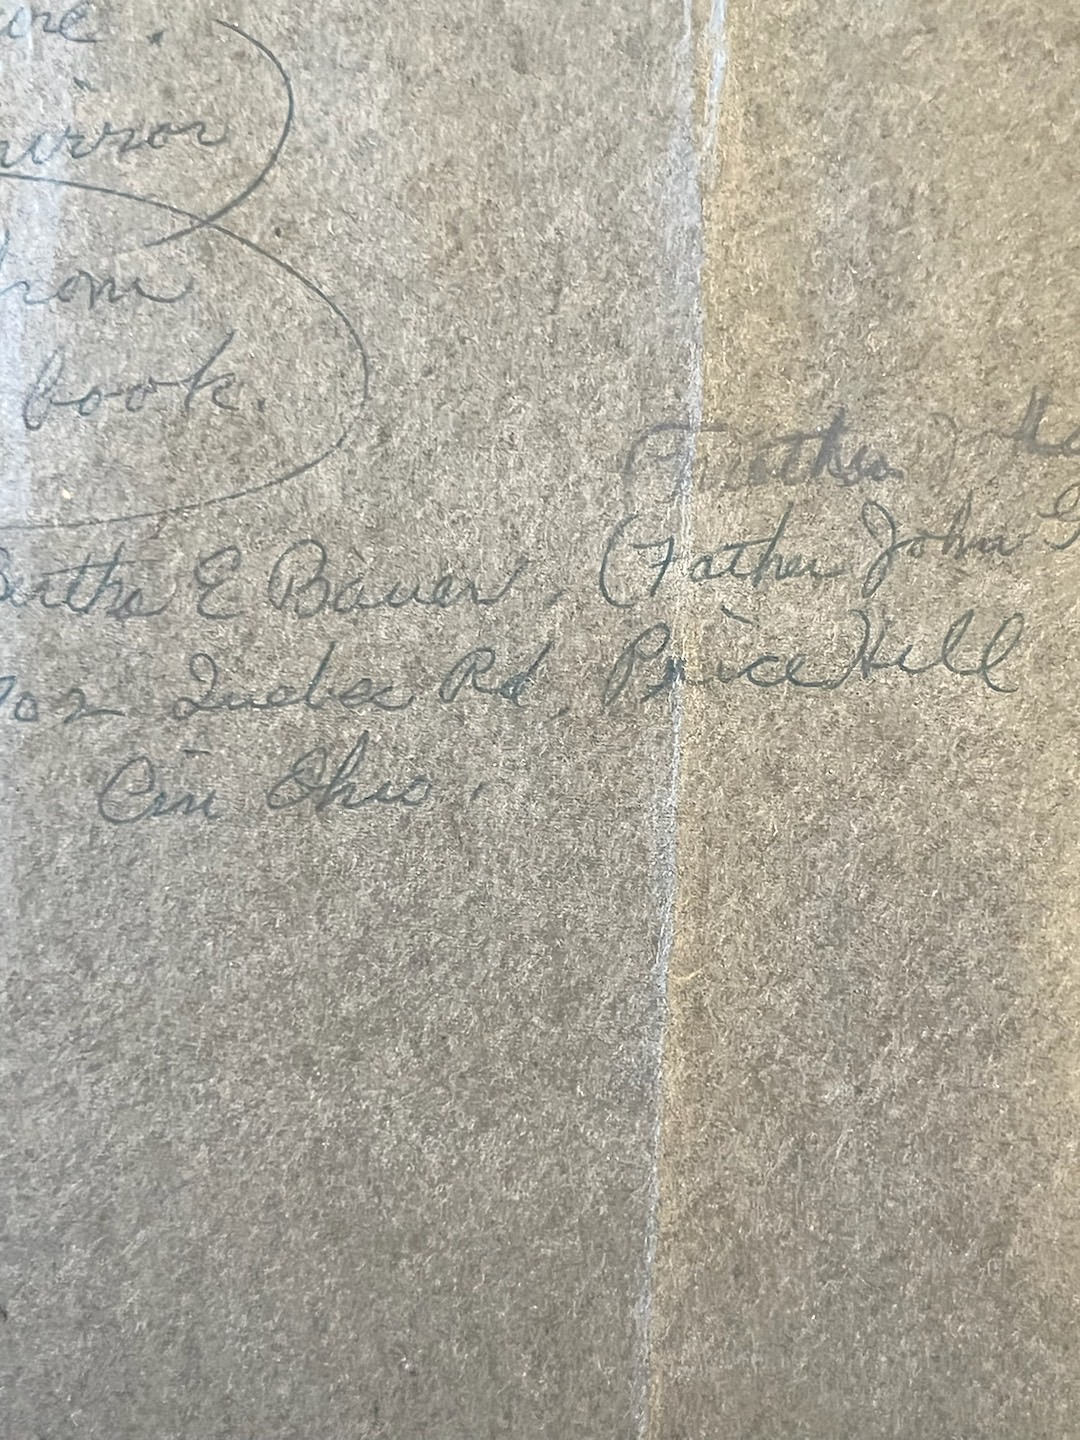 mirror)
from
book.
Father
Bertha E Bauer, (Father John
702 Quebec Rd, Price Hill
Cin Ohio.